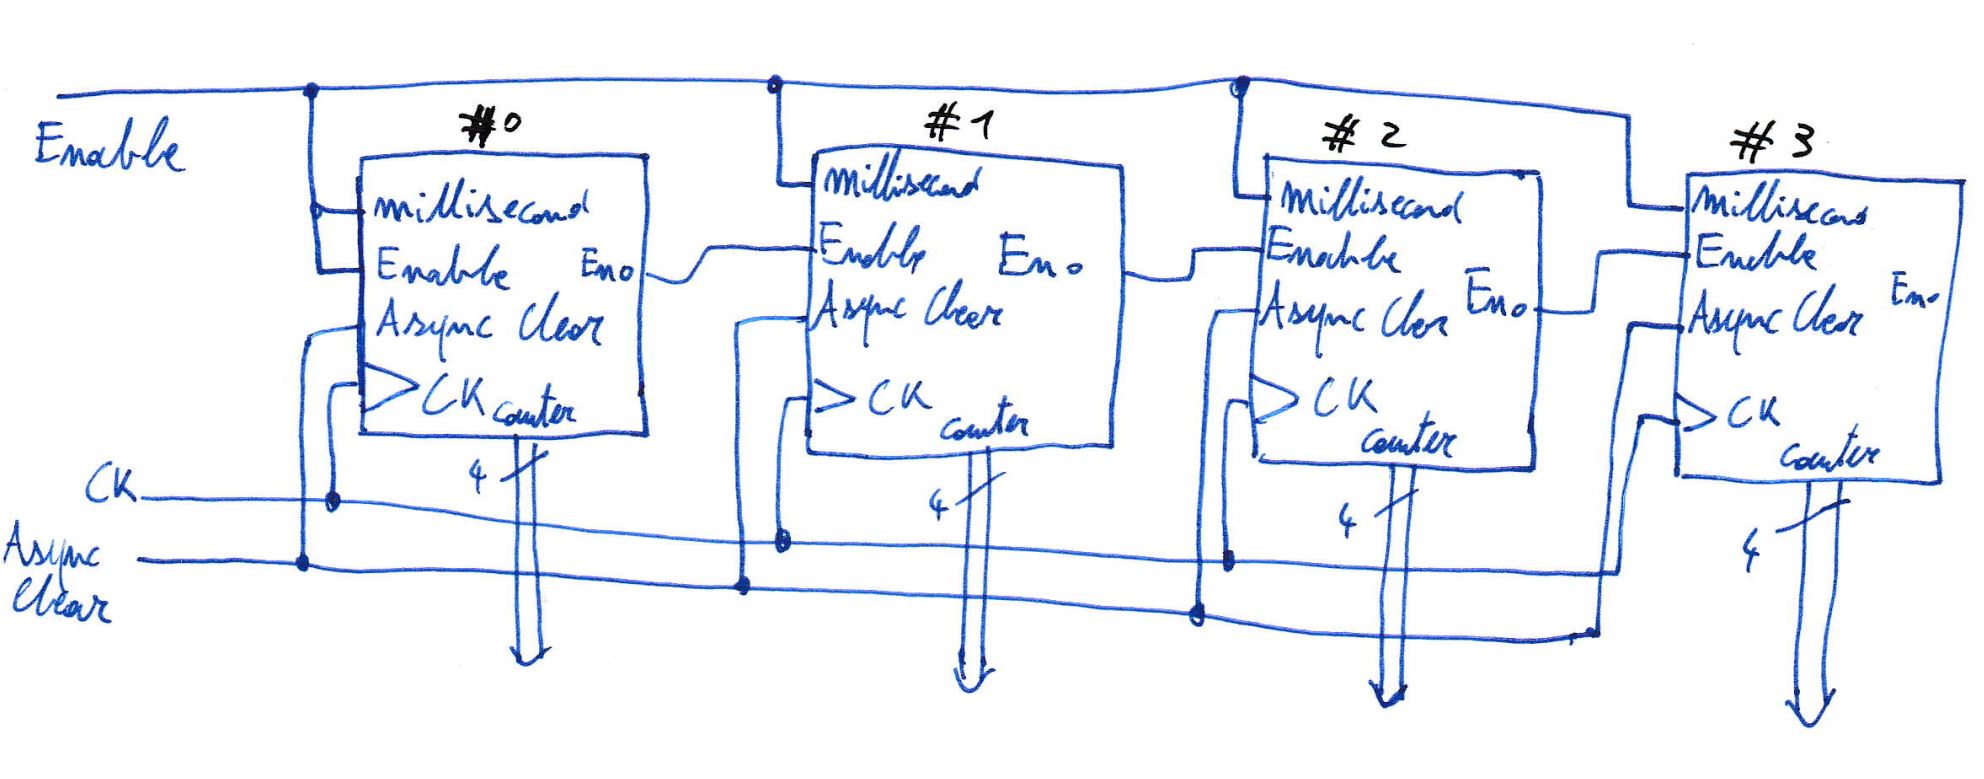 Enable
#0
millisecond
Enable
Eno
Async Clear
CK
counter
4
#1
millisecond
Enable
Eno
Async Clear
CK
counter
4
#2
Millisecond
Enable
Eno
Async Clear
CK
counter
4
#3
Millisecond
Enable
Eno
Async Clear
CK
counter
4
CK
Async
Clear